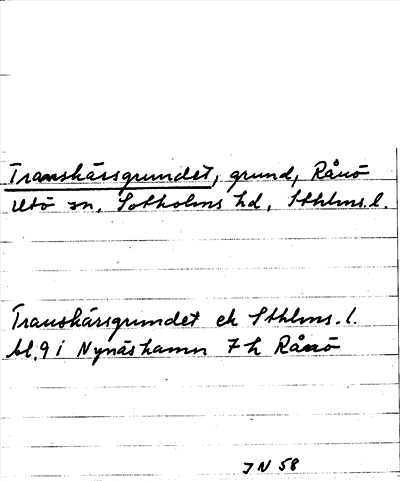 Transkärsgrundet, grund, Rånö
Utö sn, Sotholms hd, Sthlms.l.
Transkärsgrundet ek Sthlms.l.
bl.9 i Nynäshamn 7 h Rånö
JN 58